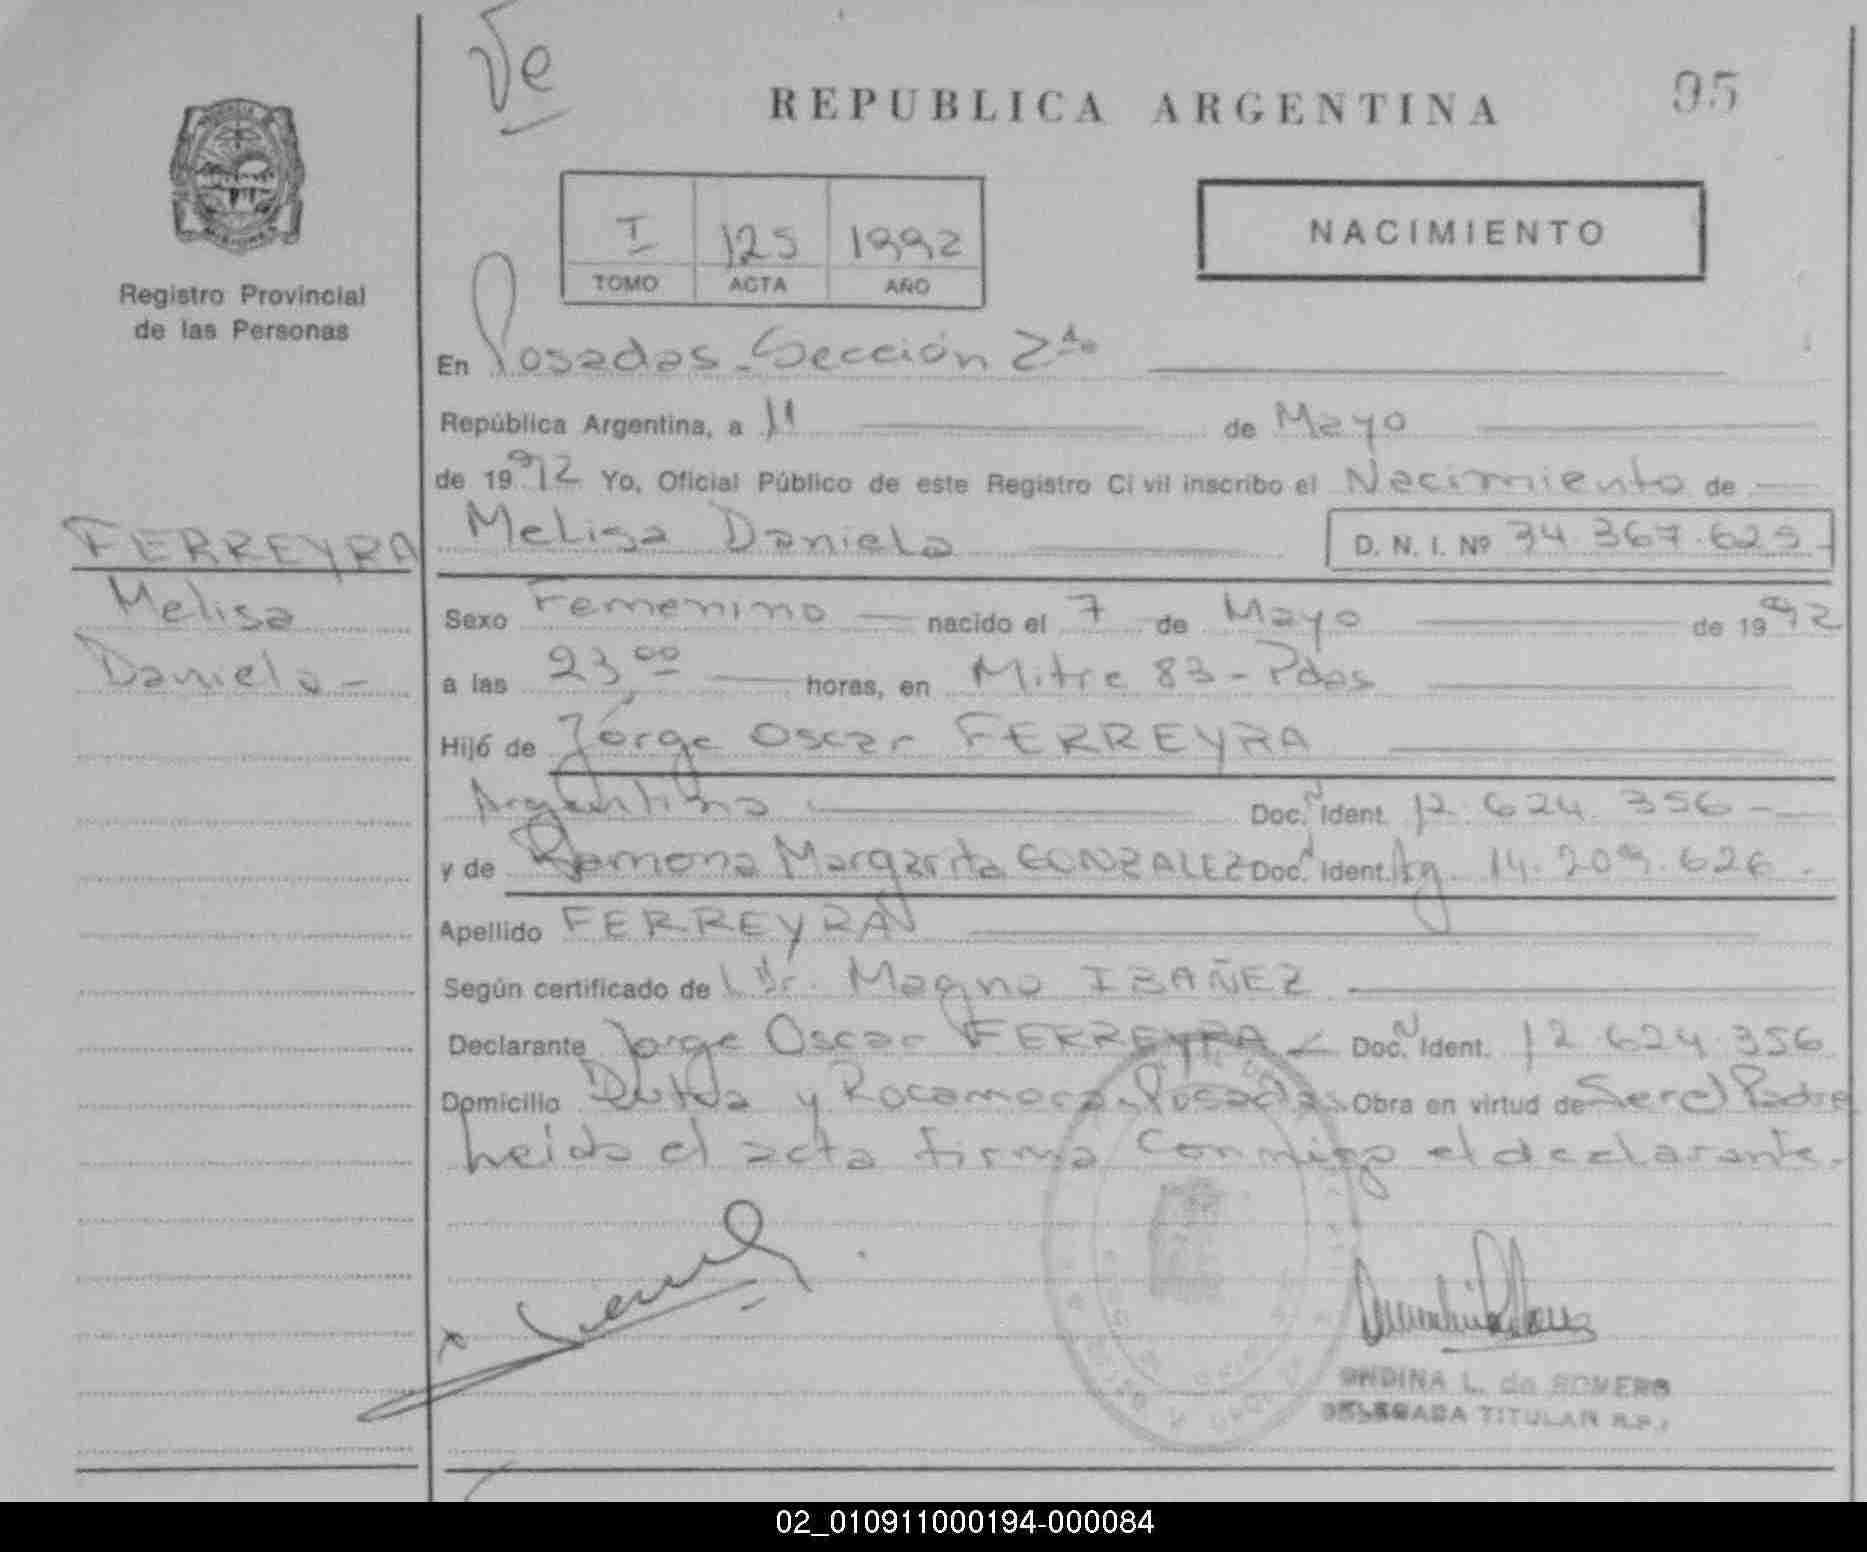 Ve
REPUBLICA ARGENTINA
95
I 125 1992
TOMO ACTA AÑO
NACIMIENTO
Registro Provincial
de las Personas
En Posadas - Sección 2da
República Argentina, a 11 de Mayo
de 1992 Yo, Oficial Público de este Registro Civil inscribo el Nacimiento de
Melisa Daniela D. N. I. Nº 34.367.625
FERREYRA
Melisa
Daniela -
Sexo Femenino nacido el 7 de Mayo de 1992
a las 23,00 horas, en Mitre 83 - Pdas
Hijo de Jorge Oscar FERREYRA
Argentina Doc. Ident. 12.624.356 -
y de Ramona Margarita GONZALEZ Doc. Ident. Ag. 14.209.626 -
Apellido FERREYRA
Según certificado de Dr. Magno IBAÑEZ
Declarante Jorge Oscar FERREYRA Doc. Ident. 12.624.356
Domicilio y Rocamora, Posadas Obra en virtud de Ser el Padre
Leida el acta firma conmigo el declarante -
ONDINA L. de ROMERO
DELEGADA TITULAR R.P.
02_010911000194-000084